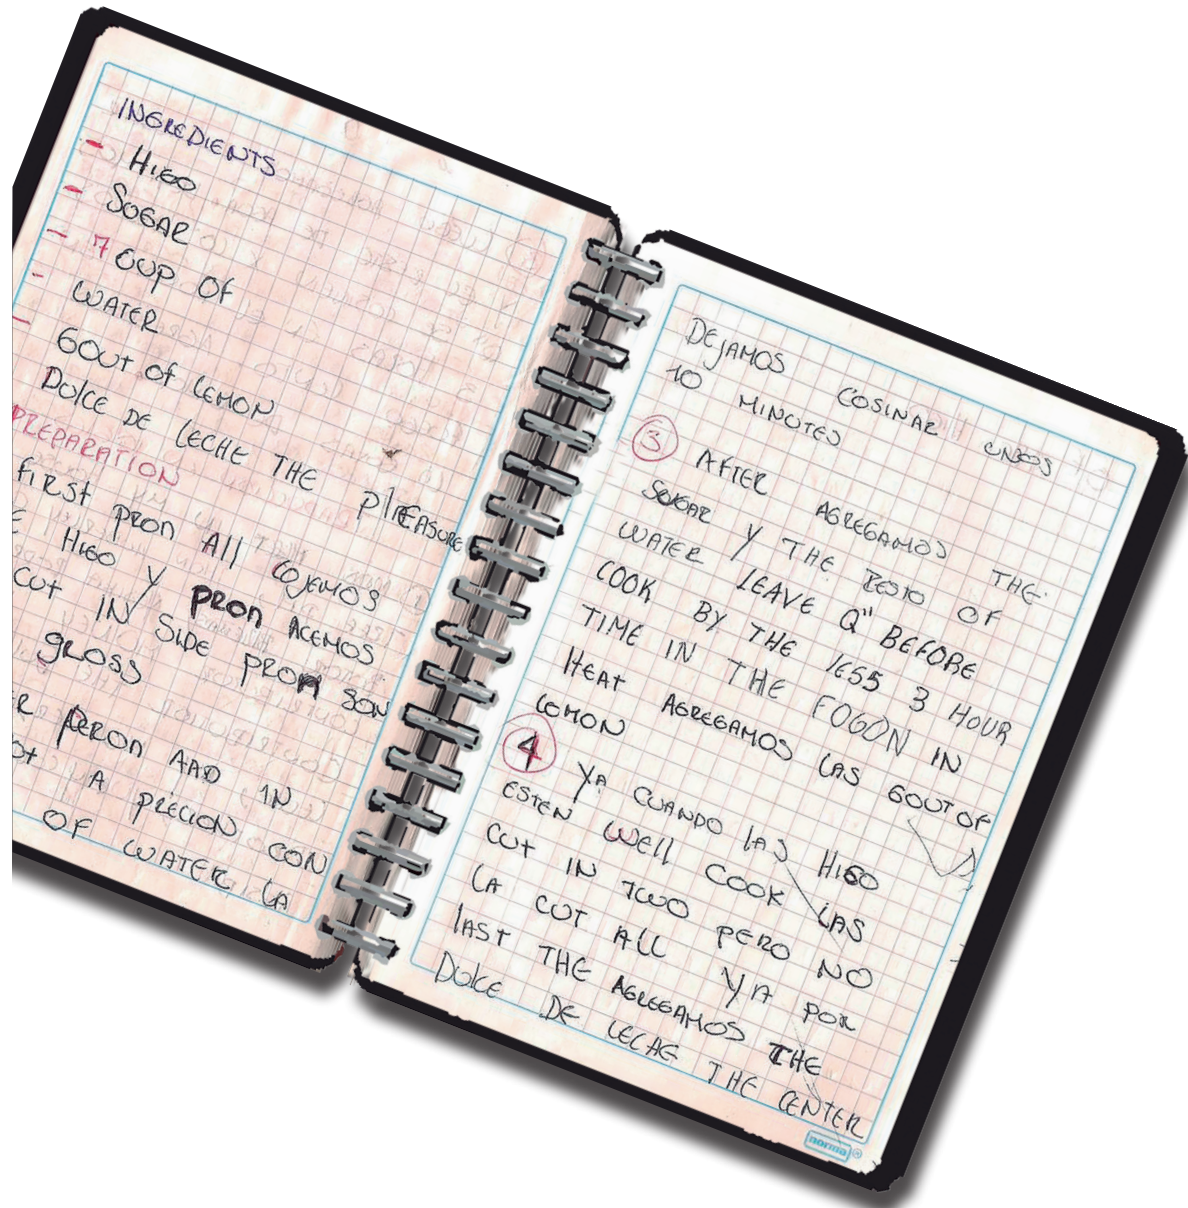 INGREDIENTS
- HIGO
- SUGAR
- 7 CUP OF
WATER
- GOUT OF LEMON
- DULCE DE LECHE THE PLEASURE
PREPARATION
FIRST PRON All COJEMOS
E HIGO Y PRON ACEMOS
CUT IN SIDE PRON SON
GROSS
ER PRRON AAD IN
OT A PRECION CON
OF WATER LA
DEJAMOS COSINAR UNOS
10 MINUTES
3 AFTER AGREGAMOS THE
SUGAR Y THE RESTO OF
WATER LEAVE Q" BEFORE
COOK BY THE LESS 3 HOUR
TIME IN THE FOGON IN
HEAT AGREGAMOS LAS GOUT OF
LEMON
4 YA CUANDO LAS HIGO
ESTEN WELL COOK LAS
CUT IN TWO PERO NO
LA CUT ALL YA POR
LAST THE AGREGAMOS THE
DULCE DE LECHE THE CENTER
norma®